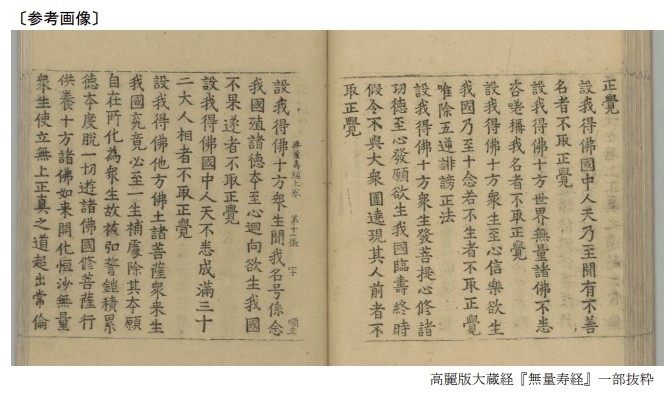 〔参考画像〕
正覺
設我得佛國中人天乃至聞有不善
名者不取正覺
設我得佛十方世界無量諸佛不悉
咨嗟稱我名者不取正覺
設我得佛十方衆生至心信樂欲生
我國乃至十念若不生者不取正覺
唯除五逆誹謗正法
設我得佛十方衆生發菩提心修諸
功德至心發願欲生我國臨壽終時
假令不與大衆圍遶現其人前者不
取正覺
無量壽經上卷 第十張 字
設我得佛十方衆生聞我名号係念
我國殖諸德夲至心迴向欲生我國
不果遂者不取正覺
設我得佛國中人天不悉成滿三十
二大人相者不取正覺
設我得佛他方佛土諸菩薩衆來生
我國究竟必至一生補處除其夲願
自在所化為衆生故被弘誓鎧積累
德夲度脫一切遊諸佛國修菩薩行
供養十方諸佛如來開化恒沙無量
衆生使立無上正真之道超出常倫
高麗版大蔵経『無量寿経』一部抜粋